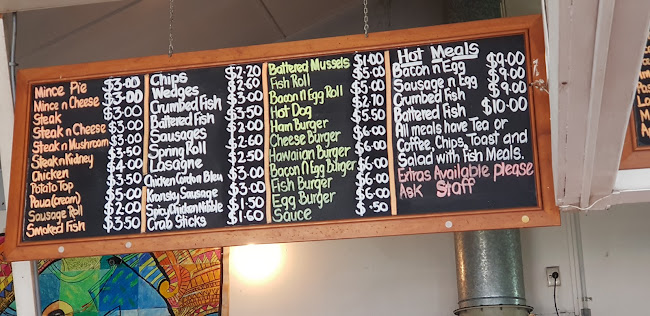 Mince Pie $3.00
Mince n Cheese $3.00
Steak $3.00
Steak n Cheese $3.00
Steak n Mushroom $3.00
Steak n Kidney $3.50
Chicken $4.00
Potato Top $3.50
Paua (cream) $5.00
Sausage Roll $2.00
Smoked Fish $3.50
Chips $2.20
Wedges $2.60
Crumbed Fish $3.00
Battered Fish $3.50
Sausages $2.00
Spring Roll $2.60
Lasagne $2.50
Chicken Cordon Bleu $3.00
Kransky Sausage $3.00
Spicy Chicken Nibble $1.50
Crab Sticks $1.60
Battered Mussels $1.00
Fish Roll $5.00
Bacon n Egg Roll $5.00
Hot Dog $2.70
Ham Burger $5.50
Cheese Burger $6.00
Hawaiian Burger $6.00
Bacon n Egg Burger $6.00
Fish Burger $6.00
Egg Burger $6.00
Sauce $.50
Hot Meals
Bacon n Egg $9.00
Sausage n Egg $9.00
Crumbed Fish $9.00
Battered Fish $10.00
All meals have Tea or
Coffee, Chips, Toast and
Salad with Fish Meals.
Extras Available please
Ask Staff